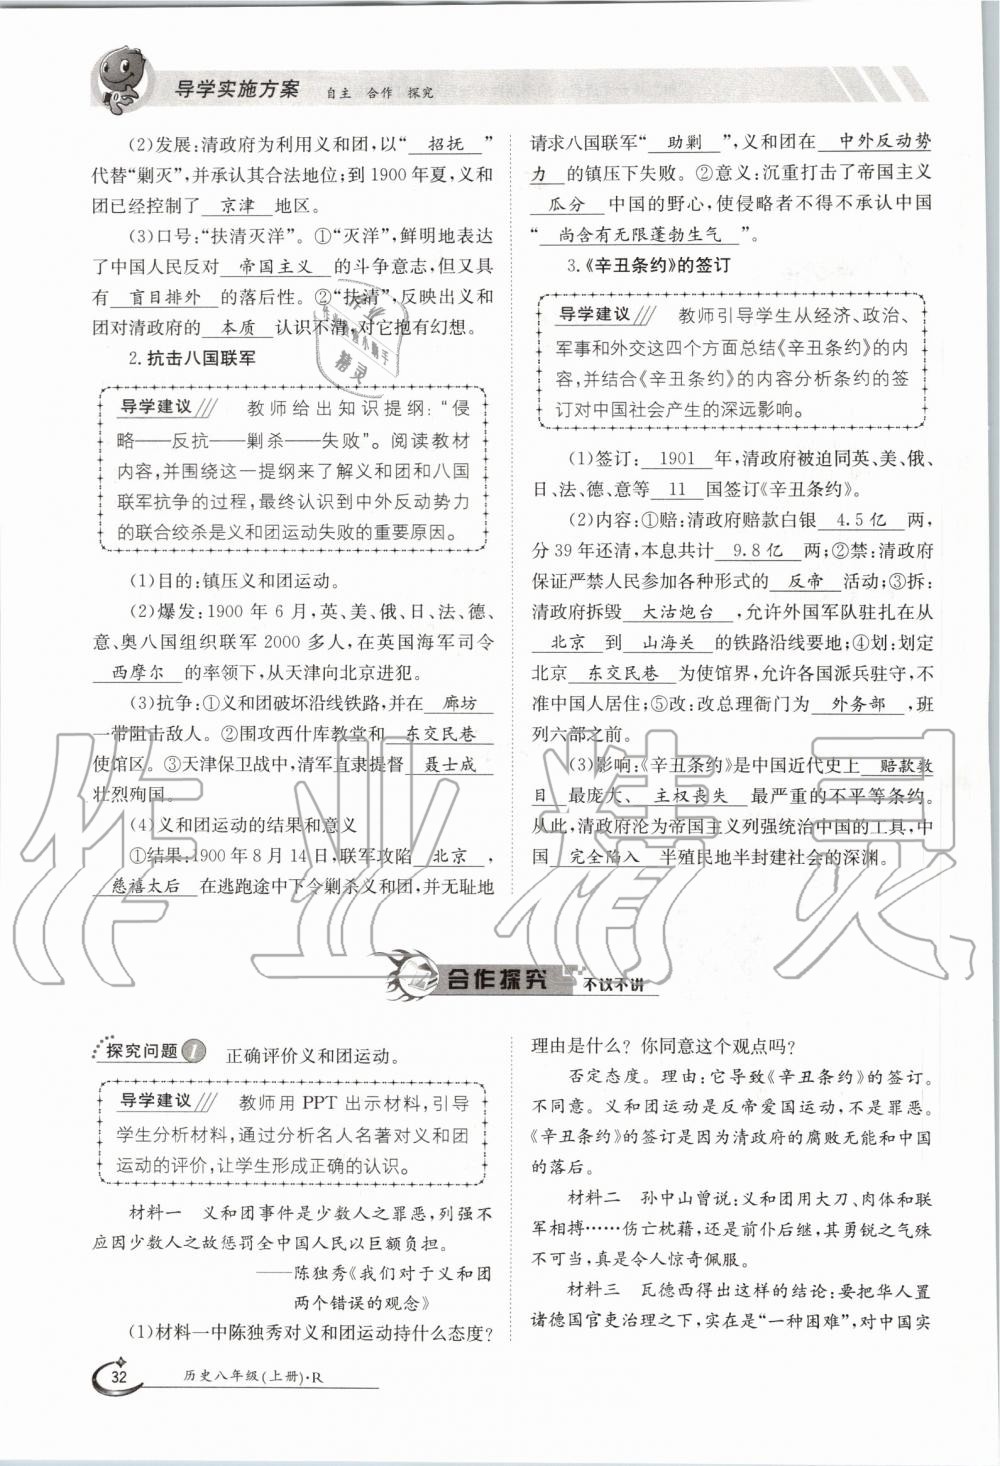 导学实施方案 自主 合作 探究
(2)发展:清政府为利用义和团,以“ 招抚 ”
代替“剿灭”,并承认其合法地位;到 1900 年夏,义和
团已经控制了 京津 地区。
(3)口号:“扶清灭洋”。①“灭洋”,鲜明地表达
了中国人民反对 帝国主义 的斗争意志,但又具
有 盲目排外 的落后性。②“扶清”,反映出义和
团对清政府的 本质 认识不清,对它抱有幻想。
2. 抗击八国联军
导学建议 教师给出知识提纲:“侵
略——反抗——剿杀——失败”。阅读教材
内容,并围绕这一提纲来了解义和团和八国
联军抗争的过程,最终认识到中外反动势力
的联合绞杀是义和团运动失败的重要原因。
(1)目的:镇压义和团运动。
(2)爆发:1900 年 6 月,英、美、俄、日、法、德、
意、奥八国组织联军 2000 多人,在英国海军司令
西摩尔 的率领下,从天津向北京进犯。
(3)抗争:①义和团破坏沿线铁路,并在 廊坊
一带阻击敌人。②围攻西什库教堂和 东交民巷
使馆区。③天津保卫战中,清军直隶提督 聂士成
壮烈殉国。
(4)义和团运动的结果和意义
①结果:1900 年 8 月 14 日,联军攻陷 北京 ,
慈禧太后 在逃跑途中下令剿杀义和团,并无耻地
请求八国联军“ 助剿 ”,义和团在 中外反动势
力 的镇压下失败。②意义:沉重打击了帝国主义
瓜分 中国的野心,使侵略者不得不承认中国
“ 尚含有无限蓬勃生气 ”。
3.《辛丑条约》的签订
导学建议 教师引导学生从经济、政治、
军事和外交这四个方面总结《辛丑条约》的内
容,并结合《辛丑条约》的内容分析条约的签
订对中国社会产生的深远影响。
(1)签订: 1901 年,清政府被迫同英、美、俄、
日、法、德、意等 11 国签订《辛丑条约》。
(2)内容:①赔:清政府赔款白银 4.5 亿 两,
分 39 年还清,本息共计 9.8 亿 两;②禁:清政府
保证严禁人民参加各种形式的 反帝 活动;③拆:
清政府拆毁 大沽炮台 ,允许外国军队驻扎在从
北京 到 山海关 的铁路沿线要地;④划:划定
北京 东交民巷 为使馆界,允许各国派兵驻守,不
准中国人居住;⑤改:改总理衙门为 外务部 ,班
列六部之前。
(3)影响:《辛丑条约》是中国近代史上 赔款数
目 最庞大、 主权丧失 最严重的不平等条约。
从此,清政府沦为帝国主义列强统治中国的工具,中
国 完全陷入 半殖民地半封建社会的深渊。
合作探究 不议不讲
探究问题 1 正确评价义和团运动。
导学建议 教师用 PPT 出示材料,引导
学生分析材料,通过分析名人名著对义和团
运动的评价,让学生形成正确的认识。
材料一 义和团事件是少数人之罪恶,列强不
应因少数人之故惩罚全中国人民以巨额负担。
——陈独秀《我们对于义和团
两个错误的观念》
(1)材料一中陈独秀对义和团运动持什么态度?
理由是什么? 你同意这个观点吗?
否定态度。理由:它导致《辛丑条约》的签订。
不同意。义和团运动是反帝爱国运动,不是罪恶。
《辛丑条约》的签订是因为清政府的腐败无能和中国
的落后。
材料二 孙中山曾说:义和团用大刀、肉体和联
军相搏……伤亡枕藉,还是前仆后继,其勇锐之气殊
不可当,真是令人惊奇佩服。
材料三 瓦德西得出这样的结论:要把华人置
诸德国官吏治理之下,实在是“一种困难”,对中国实
32 历史八年级(上册)·R
作业精灵
作业
精灵